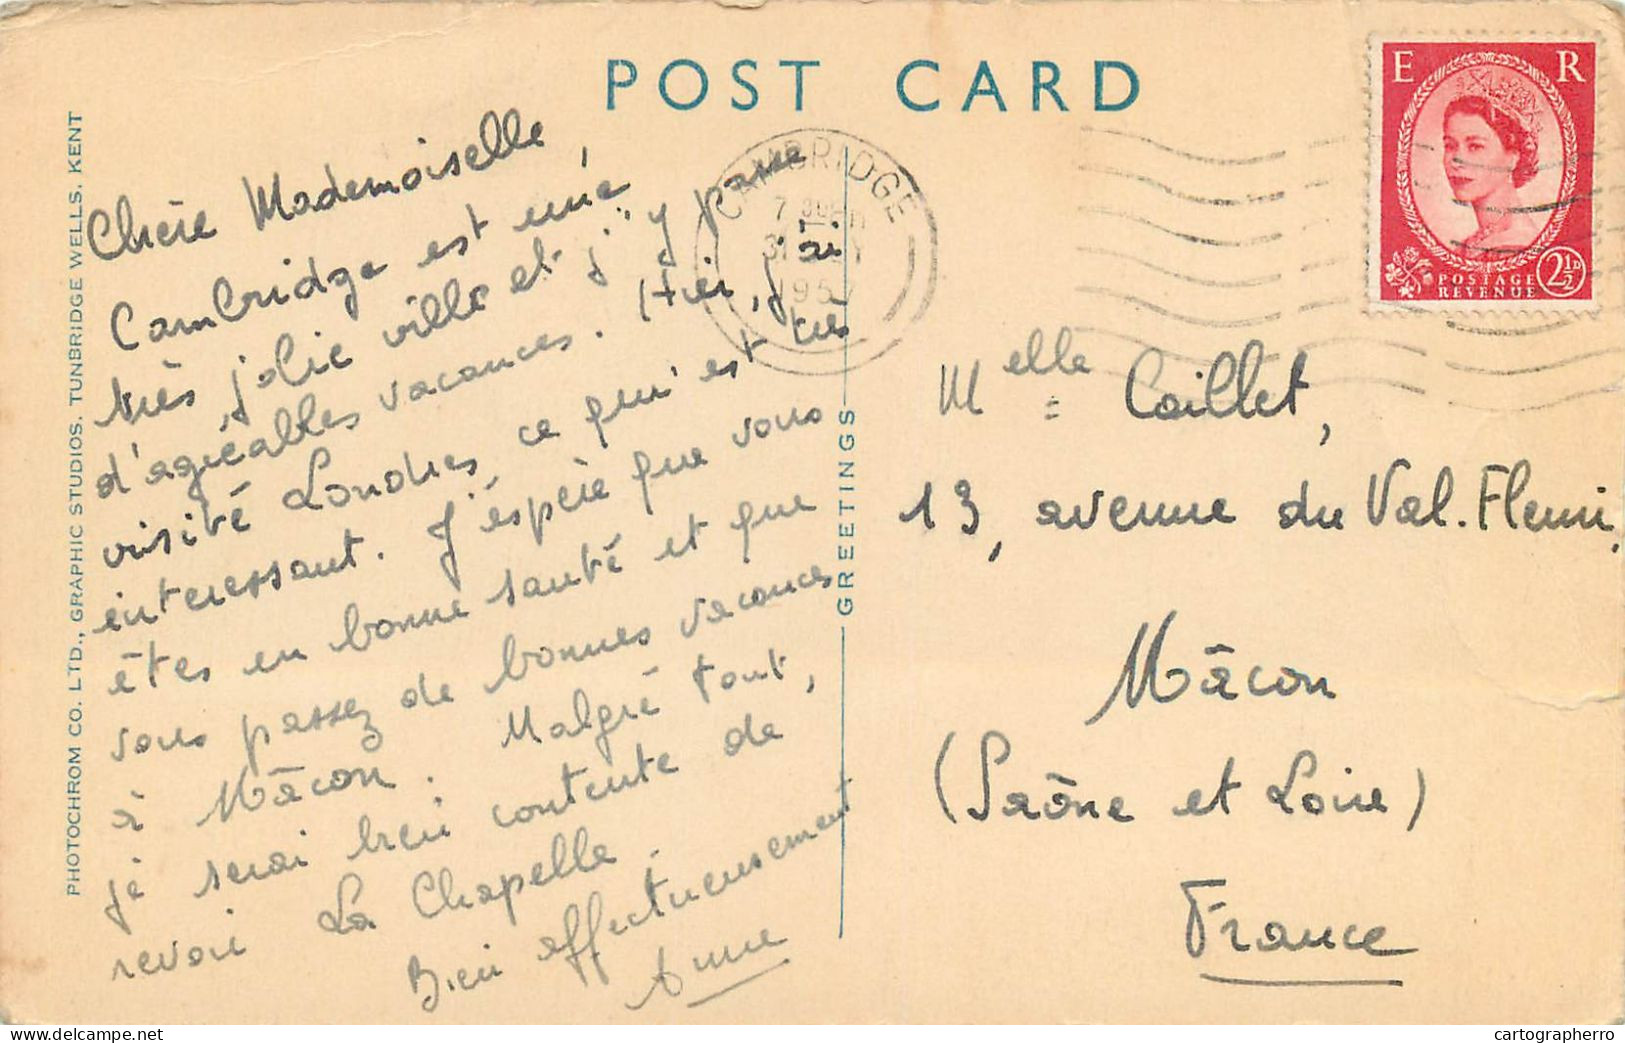 POST CARD
PHOTOCHROM CO. LTD., GRAPHIC STUDIOS, TUNBRIDGE WELLS, KENT
GREETINGS
Chère Mademoiselle,
Cambridge est une
très jolie ville et j'y passe
d'agréables vacances. Hier, j'ai
visité Londres, ce qui est très
intéressant. J'espère que vous
êtes en bonne santé et que
vous passez de bonnes vacances
à Mâcon. Malgré tout,
je serai bien contente de
revoir La Chapelle.
Bien affectueusement
Anne
CAMBRIDGE
E R
POSTAGE
REVENUE
2½D
Melle Caillet,
13, avenue du Val.Fleuri,
Mâcon
(Saône et Loire)
France
cartographerro